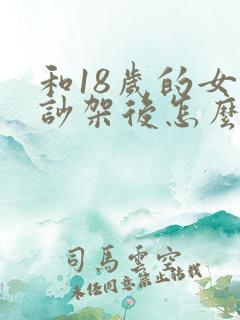 和18歲的女
訬架後怎麼
司馬雲空
未经同意禁止转载